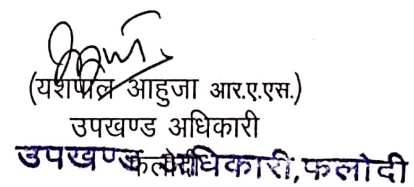 (यशपाल आहुजा आर.ए.एस.)
उपखण्ड अधिकारी
फलोदी
उपखण्ड अधिकारी, फलोदी